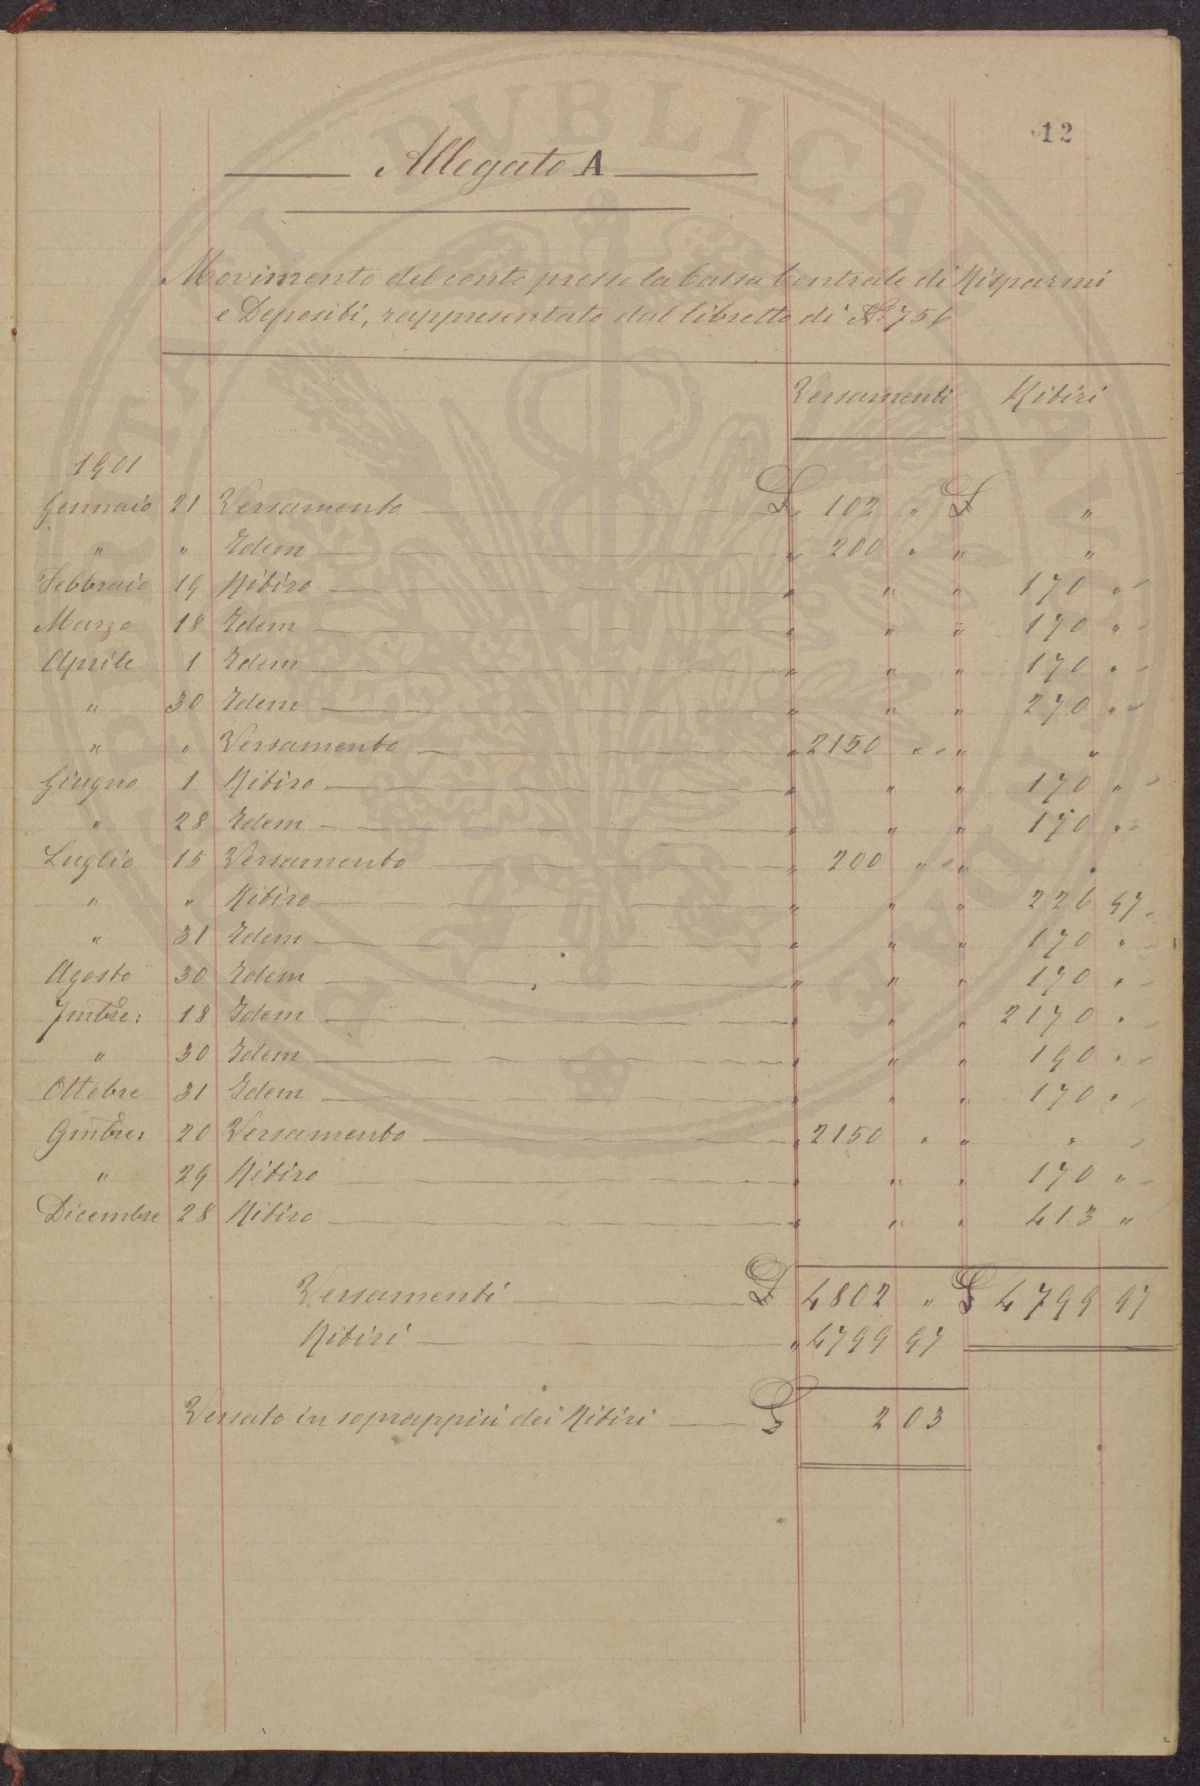 12
Allegato A
Movimento del conto presso la Cassa Centrale di Risparmi
e Depositi, rappresentato dal libretto di N.° 756
Versamenti Ritiri
1901
Gennaio 21 Versamento £ 102 " £ "
" " Idem " 200 " " "
Febbraio 19 Ritiro " " " 170 "
Marzo 18 Idem " " " 170 "
Aprile 1 Idem " " " 170 "
" 30 Idem " " " 270 "
" " Versamento " 2150 " " "
Giugno 1 Ritiro " " " 170 "
" 28 Idem " " " 170 "
Luglio 15 Versamento " 200 " " "
" " Ritiro " " " 226 97
" 31 Idem " " " 170 "
Agosto 30 Idem " " " 170 "
7mbre: 18 Idem " " " 2170 "
" 30 Idem " " " 190 "
Ottobre 31 Idem " " " 170 "
9mbre: 20 Versamento " 2150 " " "
" 29 Ritiro " " " 170 "
Dicembre 28 Ritiro " " " 413 "
Versamenti £ 4802 " £ 4799 97
Ritiri " 4799 97
Versato in soprappiù dei Ritiri £ 2 03